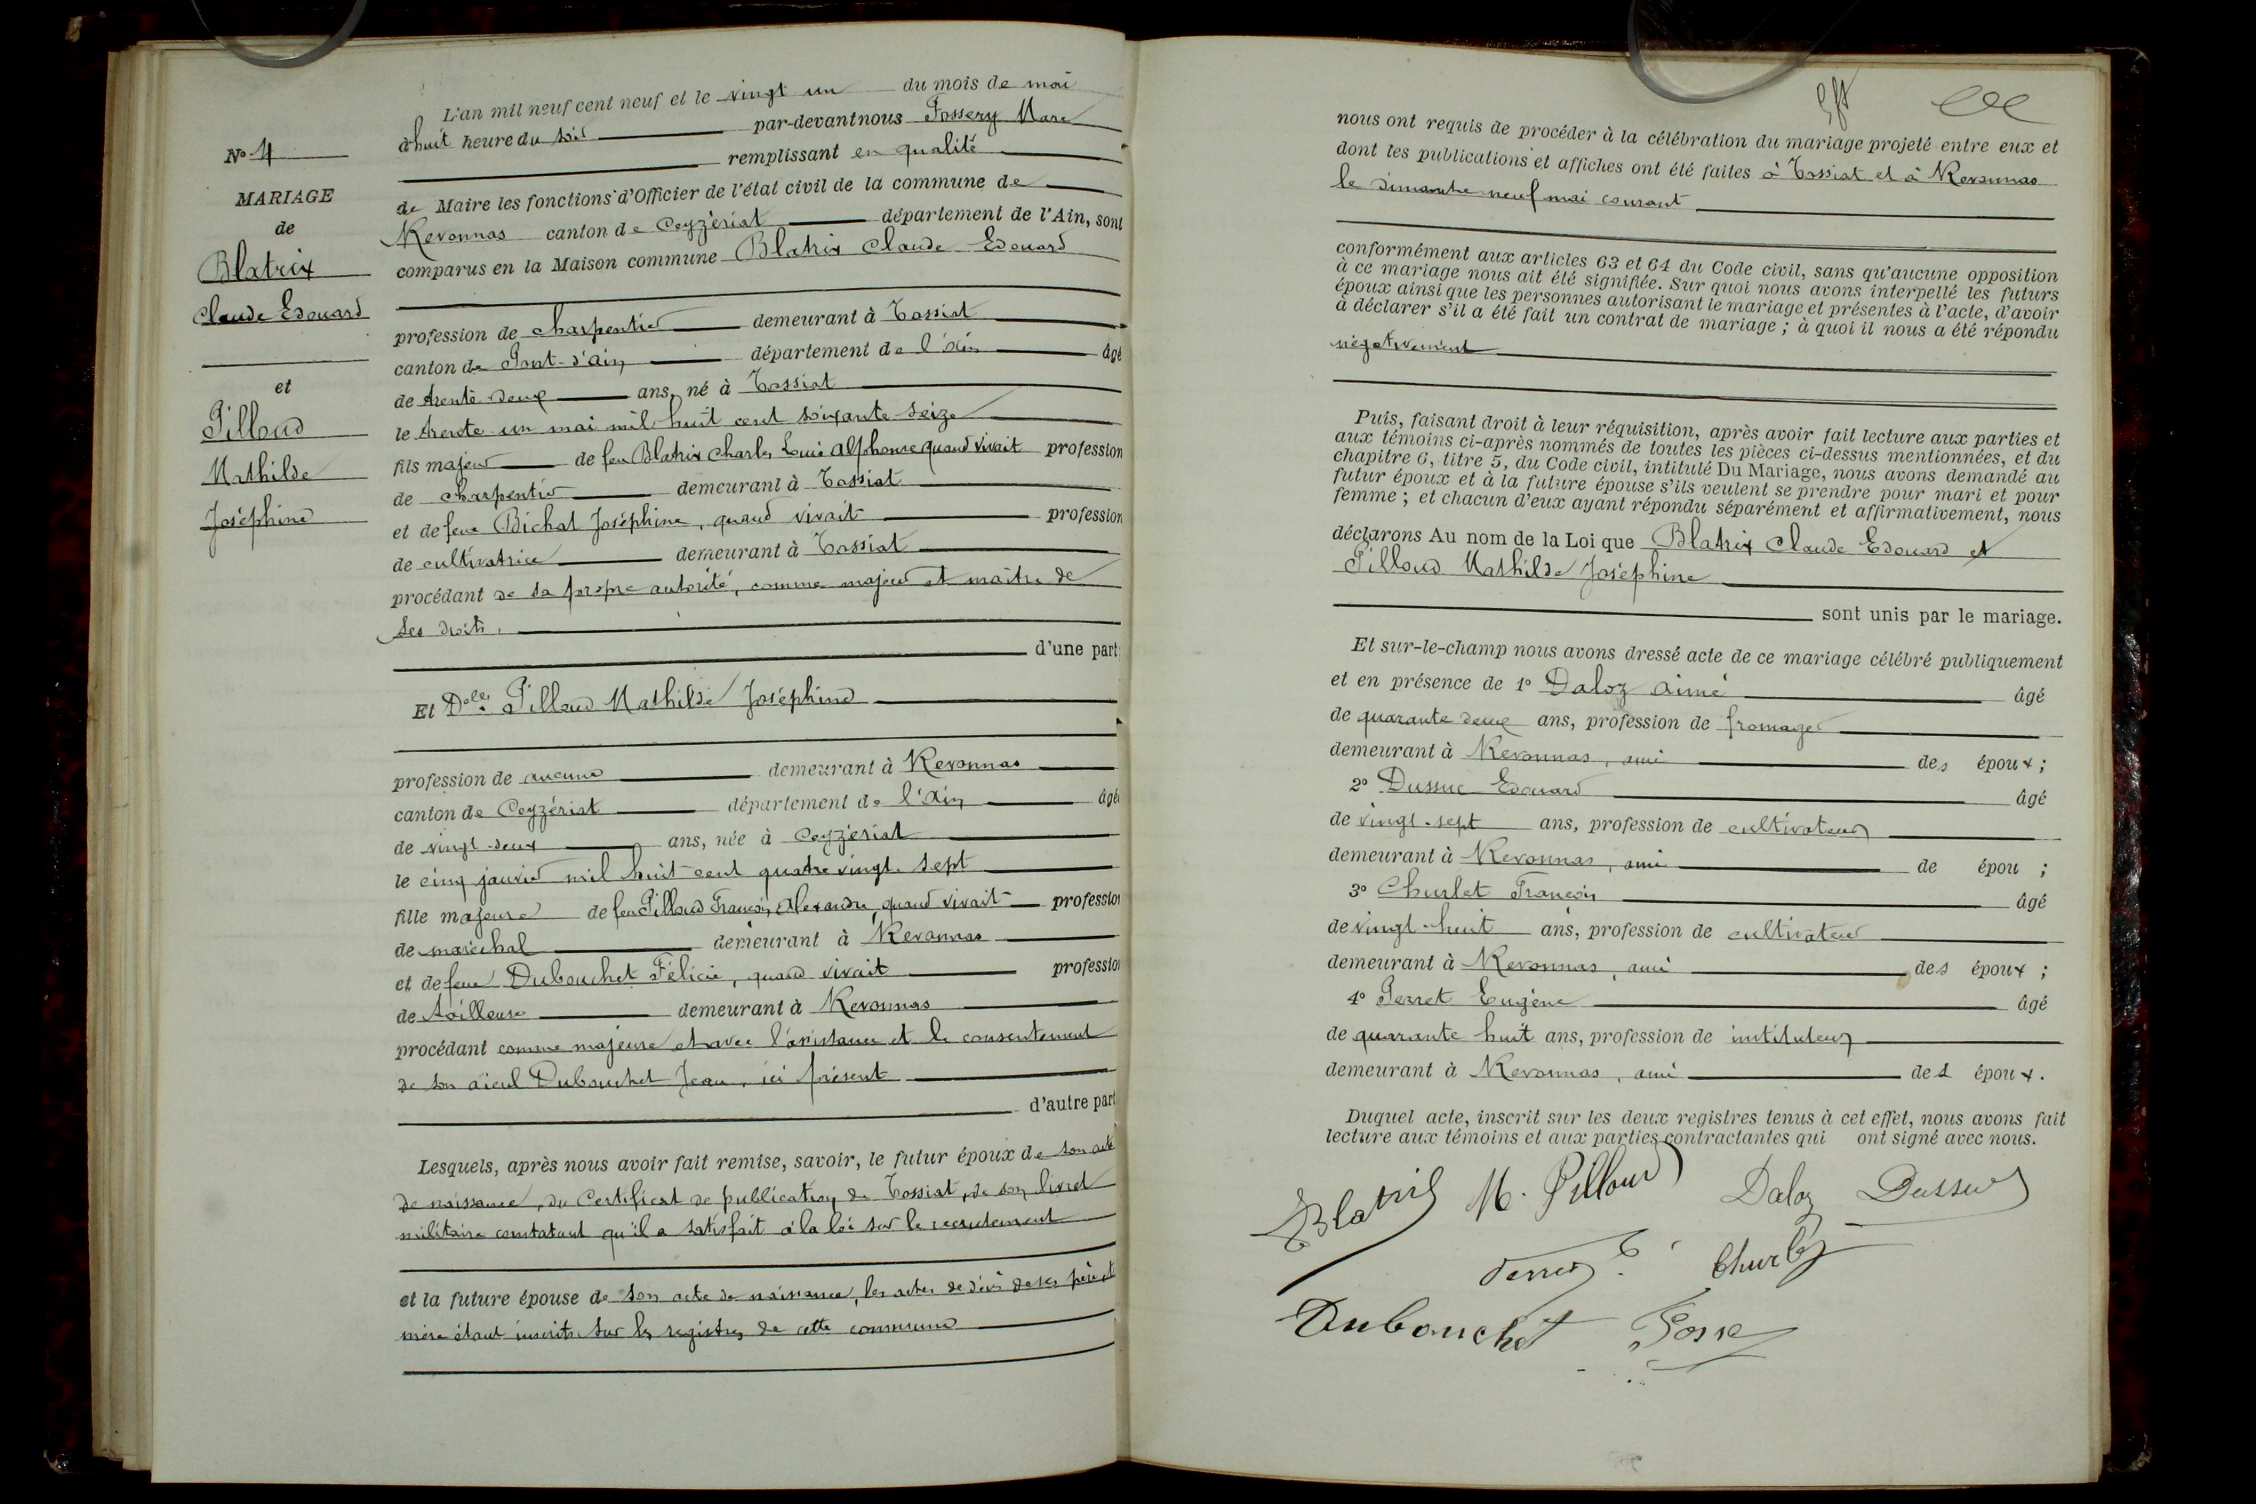 N° 4
MARIAGE
de
Blatrix
Claude Edouard
et
Pilloud
Mathilde
Joséphine
L'an mil neuf cent neuf et le vingt un du mois de mai
à huit heure du soir par-devant nous Fossery Marc
remplissant en qualité
de Maire les fonctions d'Officier de l'état civil de la commune de
Revonnas canton de Ceyzériat département de l'Ain, sont
comparus en la Maison commune Blatrix Claude Edouard
profession de charpentier demeurant à Tossiat
canton de Pont-d'ain département de l'Ain âgé
de trente deux ans, né à Tossiat
le trente un mai mil huit cent soixante seize
fils majeur de feu Blatrix Charles Louis Alphonse quand vivait profession
de charpentier demeurant à Tossiat
et de feue Bichat Joséphine, quand vivait profession
de cultivatrice demeurant à Tossiat
procédant de sa propre autorité, comme majeur et maître de
ses droits.
d'une part
Et Delle Pilloud Mathilde Joséphine
profession de aucune demeurant à Revonnas
canton de Ceyzériat département de l'Ain âgée
de vingt-deux ans, née à Ceyzériat
le cinq janvier mil huit cent quatre vingt-sept
fille majeure de feu Pilloud François Alexandre quand vivait profession
de maréchal demeurant à Revonnas
et de feue Dubouchet Félicie, quand vivait profession
de tailleuse demeurant à Revonnas
procédant comme majeure et avec l'assistance et le consentement
de son aïeul Dubouchet Jean, ici présent
d'autre part
Lesquels, après nous avoir fait remise, savoir, le futur époux de son acte
de naissance, du Certificat de publication de Tossiat, de son livret
militaire constatant qu'il a satisfait à la loi sur le recrutement
et la future épouse de son acte de naissance, les actes de décès de ses père et
mère étant inscrits sur les registres de cette commune
nous ont requis de procéder à la célébration du mariage projeté entre eux et
dont les publications et affiches ont été faites à Tossiat et à Revonnas
le dimanche neuf mai courant
conformément aux articles 63 et 64 du Code civil, sans qu'aucune opposition
à ce mariage nous ait été signifiée. Sur quoi nous avons interpellé les futurs
époux ainsi que les personnes autorisant le mariage et présentes à l'acte, d'avoir
à déclarer s'il a été fait un contrat de mariage ; à quoi il nous a été répondu
négativement
Puis, faisant droit à leur réquisition, après avoir fait lecture aux parties et
aux témoins ci-après nommés de toutes les pièces ci-dessus mentionnées, et du
chapitre 6, titre 5, du Code civil, intitulé Du Mariage, nous avons demandé au
futur époux et à la future épouse s'ils veulent se prendre pour mari et pour
femme ; et chacun d'eux ayant répondu séparément et affirmativement, nous
déclarons Au nom de la Loi que Blatrix Claude Edouard et
Pilloud Mathilde Joséphine
sont unis par le mariage.
Et sur-le-champ nous avons dressé acte de ce mariage célébré publiquement
et en présence de 1° Daloz Aimé âgé
de quarante deux ans, profession de fromager
demeurant à Revonnas, ami des époux ;
2° Dussuc Edouard âgé
de vingt-sept ans, profession de cultivateur
demeurant à Revonnas, ami de épou ;
3° Churlet François âgé
de vingt-huit ans, profession de cultivateur
demeurant à Revonnas, ami des époux ;
4° Perret Eugène âgé
de quarante huit ans, profession de instituteur
demeurant à Revonnas, ami des époux.
Duquel acte, inscrit sur les deux registres tenus à cet effet, nous avons fait
lecture aux témoins et aux parties contractantes qui ont signé avec nous.
Blatrix M. Pilloud Daloz Dussuc
Perret E. Churlet
Dubouchet